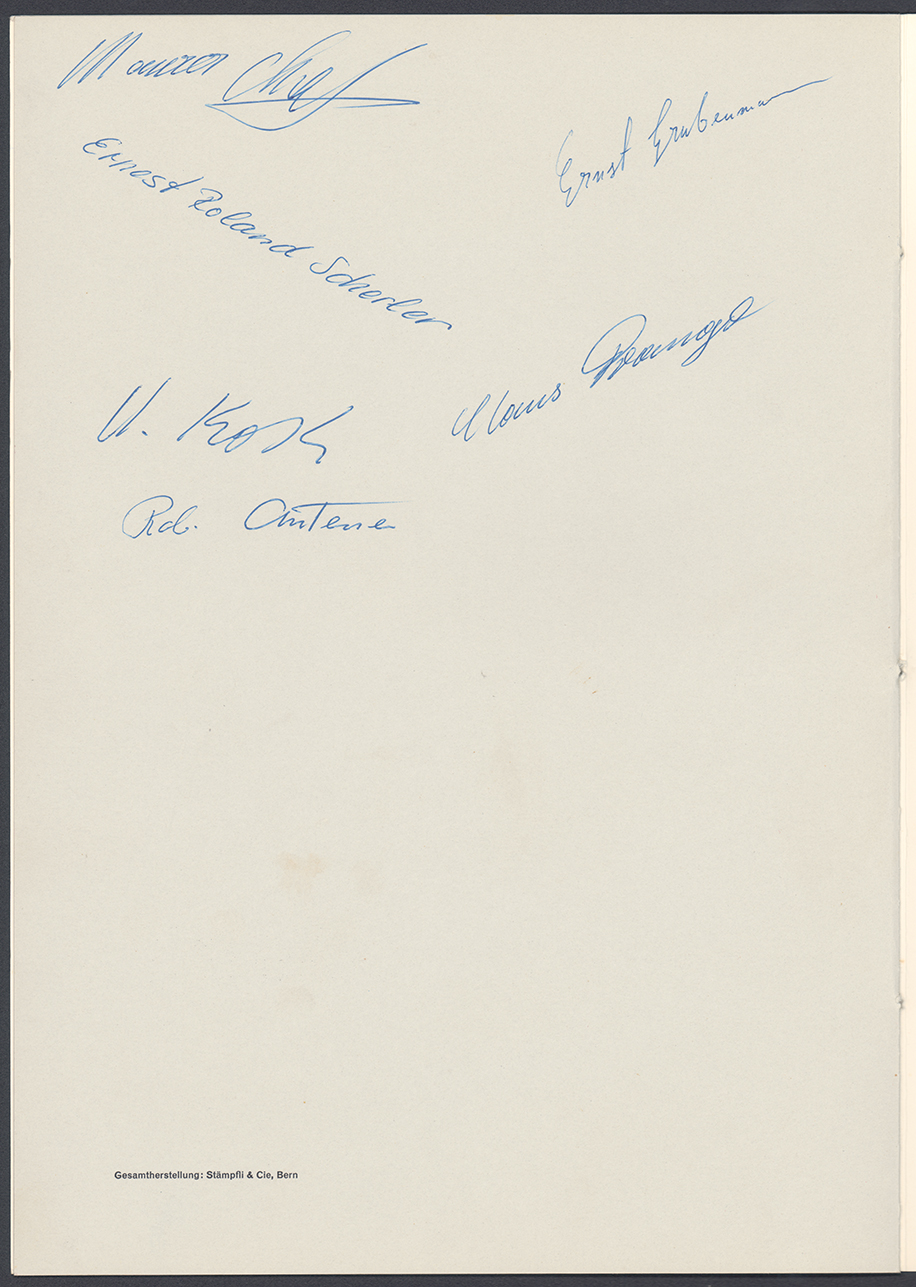 Maurer Chef
Ernst Grubenmann
Ernest Roland Scherler
Klaus
U.
Rob. Antener
Gesamtherstellung: Stämpfli & Cie, Bern